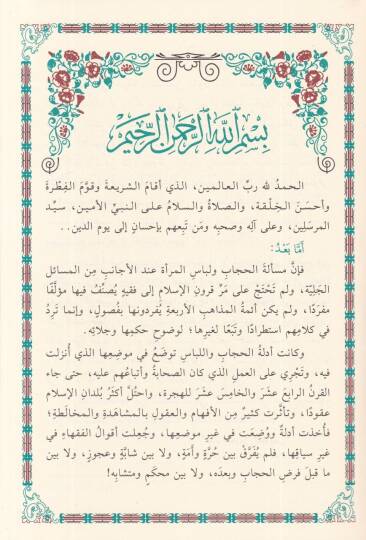 بِسْمِ اللَّهِ الرَّحْمَنِ الرَّحِيمِ
الحمدُ لله ربِّ العالمين، الذي أقامَ الشريعةَ وقوَّمَ الفِطْرةَ
وأحسَنَ الخِلْقة، والصلاةُ والسلامُ على النبيِّ الأمين، سيِّد
المرسَلين، وعلى آلِه وصحبِه ومَن تَبِعهم بإحسانٍ إلى يوم الدين..
أَمَّا بَعْدُ:
فإنَّ مسألةَ الحجابِ ولباسِ المرأة عند الأجانبِ مِن المسائلِ
الجَلِيّة، ولم تَحْتَجْ على مَرِّ قرونِ الإسلامِ إلى فقيهٍ يُصنِّفُ فيها مؤلَّفًا
مفرَدًا، ولم يكن أئمةُ المذاهبِ الأربعةِ يُفرِدونها بفُصولٍ، وإنما تَرِدُ
في كلامِهم استطرادًا وتَبَعًا لغيرِها؛ لوضوحِ حكمِها وجلائِه.
وكانت أدلةُ الحجابِ واللباسِ توضَعُ في موضعِها الذي أُنزلت
فيه، وتَجْرِي على العملِ الذي كان الصحابةُ وأتباعُهم عليه، حتى جاء
القرنُ الرابعَ عشَرَ والخامسَ عشَرَ للهجرة، واحتُلَّ أكثرُ بُلدانِ الإسلام
عقودًا، وتأثَّرت كثيرٌ مِن الأفهامِ والعقولِ بالمشاهَدةِ والمخالَطةِ؛
فأُخذت أدلةٌ ووُضِعَت في غيرِ موضعِها، وجُعِلت أقوالُ الفقهاءِ في
غيرِ سياقِها، فلم يُفَرَّقْ بين حُرَّةٍ وأَمَةٍ، ولا بين شابَّةٍ وعجوزٍ، ولا بين
ما قبل فرضِ الحجابِ وبعدَه، ولا بين محكَمٍ ومتشابِه!